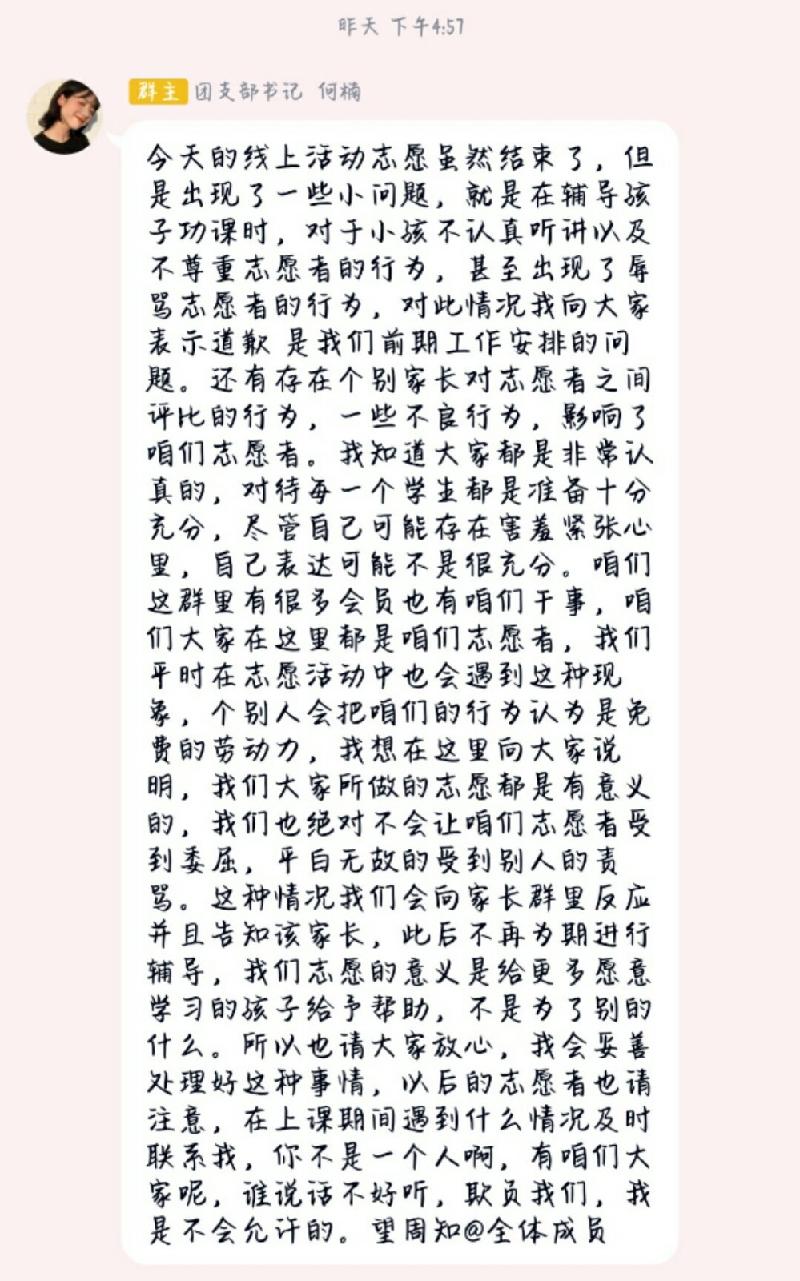 昨天 下午4:57
群主 团支部书记 何楠
今天的线上活动志愿虽然结束了，但
是出现了一些小问题，就是在辅导孩
子功课时，对于小孩不认真听讲以及
不尊重志愿者的行为，甚至出现了辱
骂志愿者的行为，对此情况我向大家
表示道歉 是我们前期工作安排的问
题。还有存在个别家长对志愿者之间
评比的行为，一些不良行为，影响了
咱们志愿者。我知道大家都是非常认
真的，对待每一个学生都是准备十分
充分，尽管自己可能存在害羞紧张心
里，自己表达可能不是很充分。咱们
这群里有很多会员也有咱们干事，咱
们大家在这里都是咱们志愿者，我们
平时在志愿活动中也会遇到这种现
象，个别人会把咱们的行为认为是免
费的劳动力，我想在这里向大家说
明，我们大家所做的志愿都是有意义
的，我们也绝对不会让咱们志愿者受
到委屈，平白无故的受到别人的责
骂。这种情况我们会向家长群里反应
并且告知该家长，此后不再为期进行
辅导，我们志愿的意义是给更多愿意
学习的孩子给予帮助，不是为了别的
什么。所以也请大家放心，我会妥善
处理好这种事情，以后的志愿者也请
注意，在上课期间遇到什么情况及时
联系我，你不是一个人啊，有咱们大
家呢，谁说话不好听，欺负我们，我
是不会允许的。望周知@全体成员